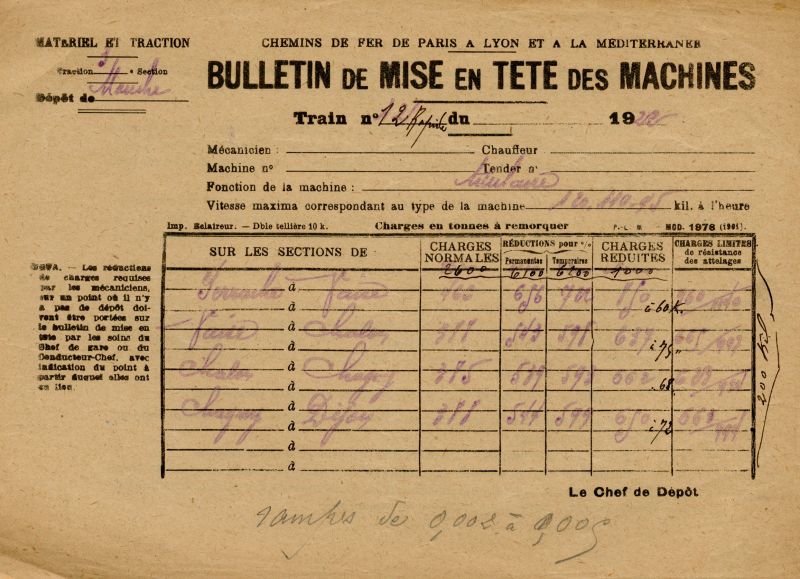 MATÉRIEL ET TRACTION
CHEMINS DE FER DE PARIS A LYON ET A LA MÉDITERRANÉE
Traction 3 Section
BULLETIN DE MISE EN TETE DES MACHINES
Dépôt de
Train nº 12 Rapide du 1922
Mécanicien : Chauffeur
Machine nº Tender nº
Fonction de la machine : titulaire
Vitesse maxima correspondant au type de la machine 120.110.95 kil. à l'heure
Imp. Eclaireur. - Dble tellière 10 k. Charges en tonnes à remorquer P.-L. M. MOD. 1978 (1901).
SUR LES SECTIONS DE
CHARGES NORMALES
RÉDUCTIONS pour %
Permanentes Temporaires
CHARGES REDUITES
CHARGES LIMITES de résistance des attelages
2600 6100 6200 4000
Perrache à Vaise 462 656 702 850
à 60 K.
Vaise à Chalon 388 543 598 637
à 75 "
Chalon à Chagny 375 539 593 662
68
Chagny à Dijon 388 544 599 650
à 72
à
à
200
NOTA. — Les réductions
de charges requises
par les mécaniciens,
sur un point où il n'y
a pas de dépôt doi-
vent être portées sur
le bulletin de mise en
tête par les soins du
Chef de gare ou du
Conducteur-Chef, avec
indication du point à
partir duquel elles ont
eu lieu.
Le Chef de Dépôt
rampes de 0,002 à 0,005